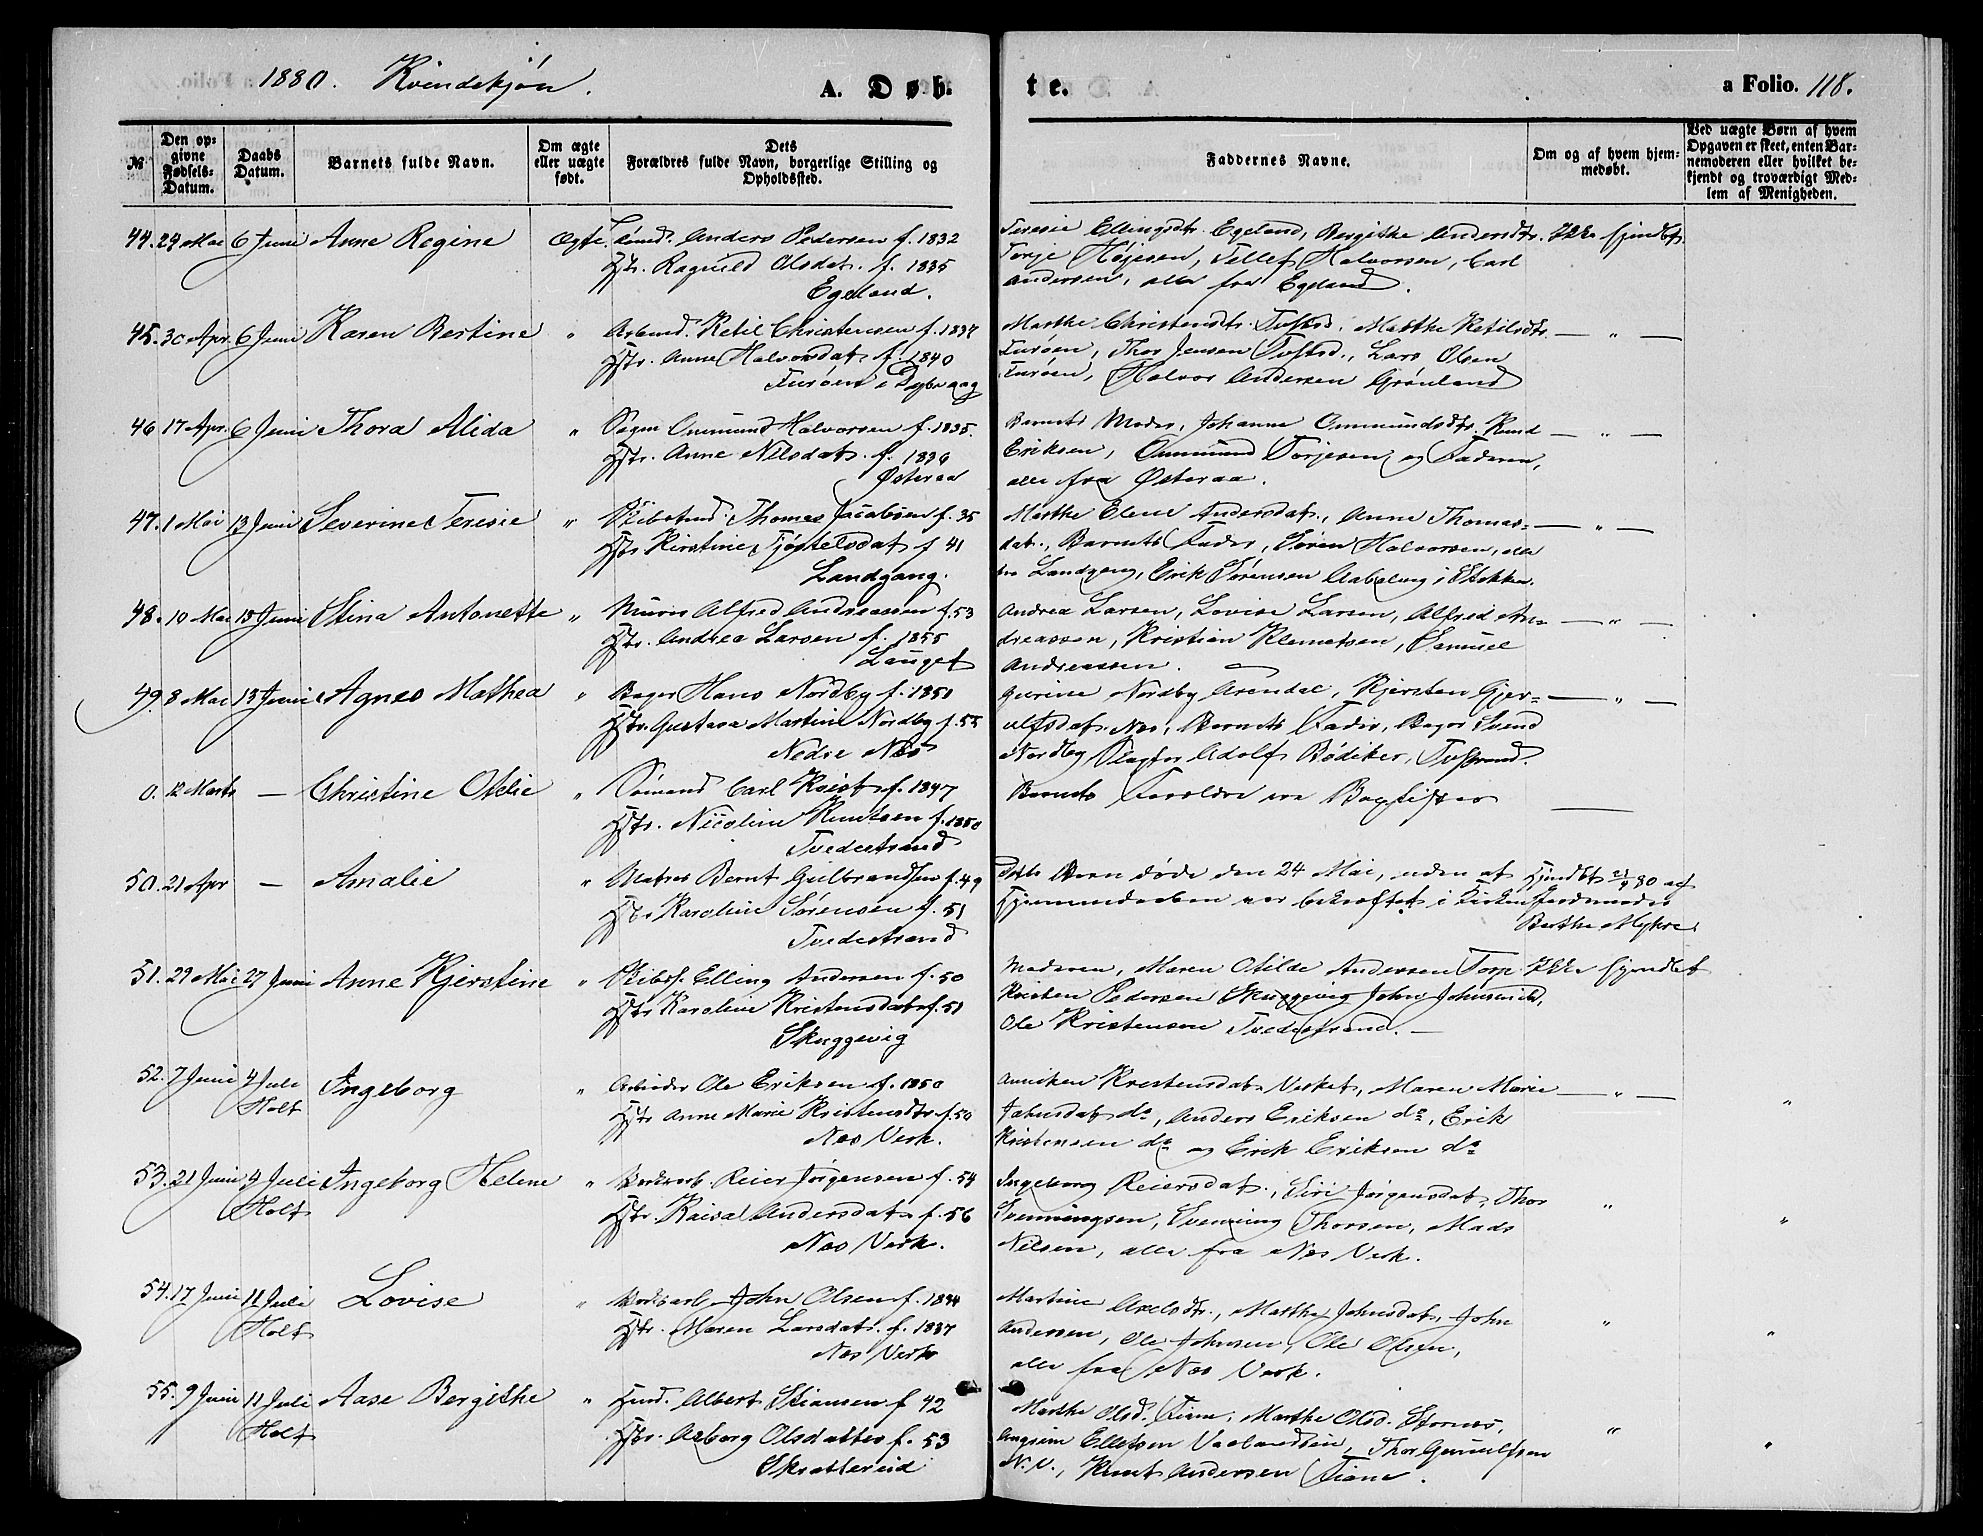 1880. Kvindekjøn.
A. Døb-
te.
a Folio. 118.
№
Den opgivne Fødsels-Datum.
Daabs Datum.
Barnets fulde Navn.
Om ægte eller uægte født.
Forældres fulde Navn, borgerlige Stilling og Dets Opholdssted.
Faddernes Navne.
Om og af hvem hjemmedøbt.
Ved uægte Børn af hvem Opgaven er skeet, enten Barnemoderen eller hvilket bekjendt og troværdigt Medlem af Menigheden.
44. 29 Mai 6 Juni Anne Regine Ægte Tømd. Anders Pedersen f. 1832
Hstr. Ragnild Olsdat. f. 1835
Egeland.
Teresie Ellingsdtr. Egeland, Bergithe Andersdtr. Ikke hjemdøbt
Torje Højesen, Tellef Halvorsen, Carl
Andersen, alle fra Egeland.
45. 30 Apr. 6 Juni Karen Bertine " Arbmd. Ketil Christensen f. 1837
Hstr. Anne Halvorsdat. f. 1840
Furøen i Dybvaag
Marthe Christensdtr. Tvstrd., Marthe Ketilsdtr. — " —
Furøen, Thor Jensen Tvstrd., Lars Olsen
Furøen, Halvor Andersen Grønland
46 17 Apr. 6 Juni Thora Alida " Ommund Halvorsen f. 1835.
Hstr. Anne Nilsdat. f. 1836
Østeraa
Barnets Moder, Johanne Ommundsdtr. Knud — " —
Eriksen, Ommund Torjesen og Faderen,
alle fra Østeraa.
47. 1 Mai 13 Juni Severine Teresie " Skibstmd. Thomas Jacobsen f. 35
Hstr. Kirstine Tjøstelsdat f 41
Landgang.
Marthe Elene Andersdat., Anne Thomas- — " —
dat., Barnets Fader, Søren Halvorsen, alle
fra Landgang, Erik Sørensen Aabelvug i Stokken
48. 10 Mai 13 Juni Stina Antonette " Murer Alfred Andreassen f. 53
Hstr. Andrea Larsen f. 1855
Lauget
Andrea Larsen, Lovise Larsen, Alfred An- — " —
dreassen, Kristian Klemetsen, Samuel
Andreassen.
49. 8 Mai 13 Juni Agnes Mathea " Bager Hans Nordby f. 1851
Hstr. Gustava Martine Nordby f. 55
Nedre Næs
Gurine Nordby Arendal, Kjersten Gjer- — " —
ulfsdat. Næs, Barnets Fader, Bager Svend
Nordby Slagter Adolf Bødiker, Tvstrand.
0. 12 Marts — Christine Otilie " Sømand Carl Kvist f. 1847
Hstr. Nicoline Knutsen f. 1850
Tvedestrand
Barnets Forældre ere Baptister —
50. 21 Apr — Amalie " Matros Bernt Gulbrandsen f. 49
Hstr Karoline Sørensen f. 51
Tvedestrand
Dette Barn døde den 24 Mai, uden at Hjemdøbt 21/4 80 af
Hjemmedaaben var bekræftet i Kirken Jordemoder
Berthe Myhre
51. 29 Mai 27 Juni Anne Kjerstine " Skibsf. Elling Andersen f. 50
Hstr Karoline Kristensdat. f. 51
Skuggevig
Moderen, Maren Otilde Andersen Torp Ikke hjemdøbt
Kristen Pedersen Skuggevig John Johnsen ibd,
Ole Kristensen Tvedestrand. —
52. 7 Juni 4 Juli Ingeborg " Arbeider Ole Eriksen f. 1850
Holt Hstr Anne Marie Kristensdtr f. 50
Næs Verk.
Anniken Kristensdat. Verket, Maren Marie — " — "
Johnsdat. do, Anders Eriksen do, Erik
Kristensen do og Erik Eriksen do
53. 21 Juni 4 Juli Ingeborg Helene " Verksarb. Reier Jørgensen f. 54
Holt Hstr. Kaisa Andersdat. f. 56
Næs Verk.
Ingeborg Reiersdat., Siri Jørgensdat., Thor " "
Svenningsen, Svenning Thorsen, Mads
Nilsen, alle fra Næs Verk.
54. 17 Juni 11 Juli Lovise " Verksarb John Olsen f. 1834
Holt Hstr. Maren Larsdat. f. 1837
Næs Verk
Martine Axelsdtr., Marthe Johnsdat., John " "
Andersen, Ole Johnsen, Ole Olsen,
alle fra Næs Verk.
55. 9 Juni 11 Juli Aase Bergithe " Hmd. Albert Stiansen f 42
Holt Hstr. Aaborg Olsdatter f. 53
Skrattereid
Marthe Olsd. Fiane, Marthe Olsd. " "
Ellefsen Thor Gunulfsen
N. V., Knut Andersen Fiane.